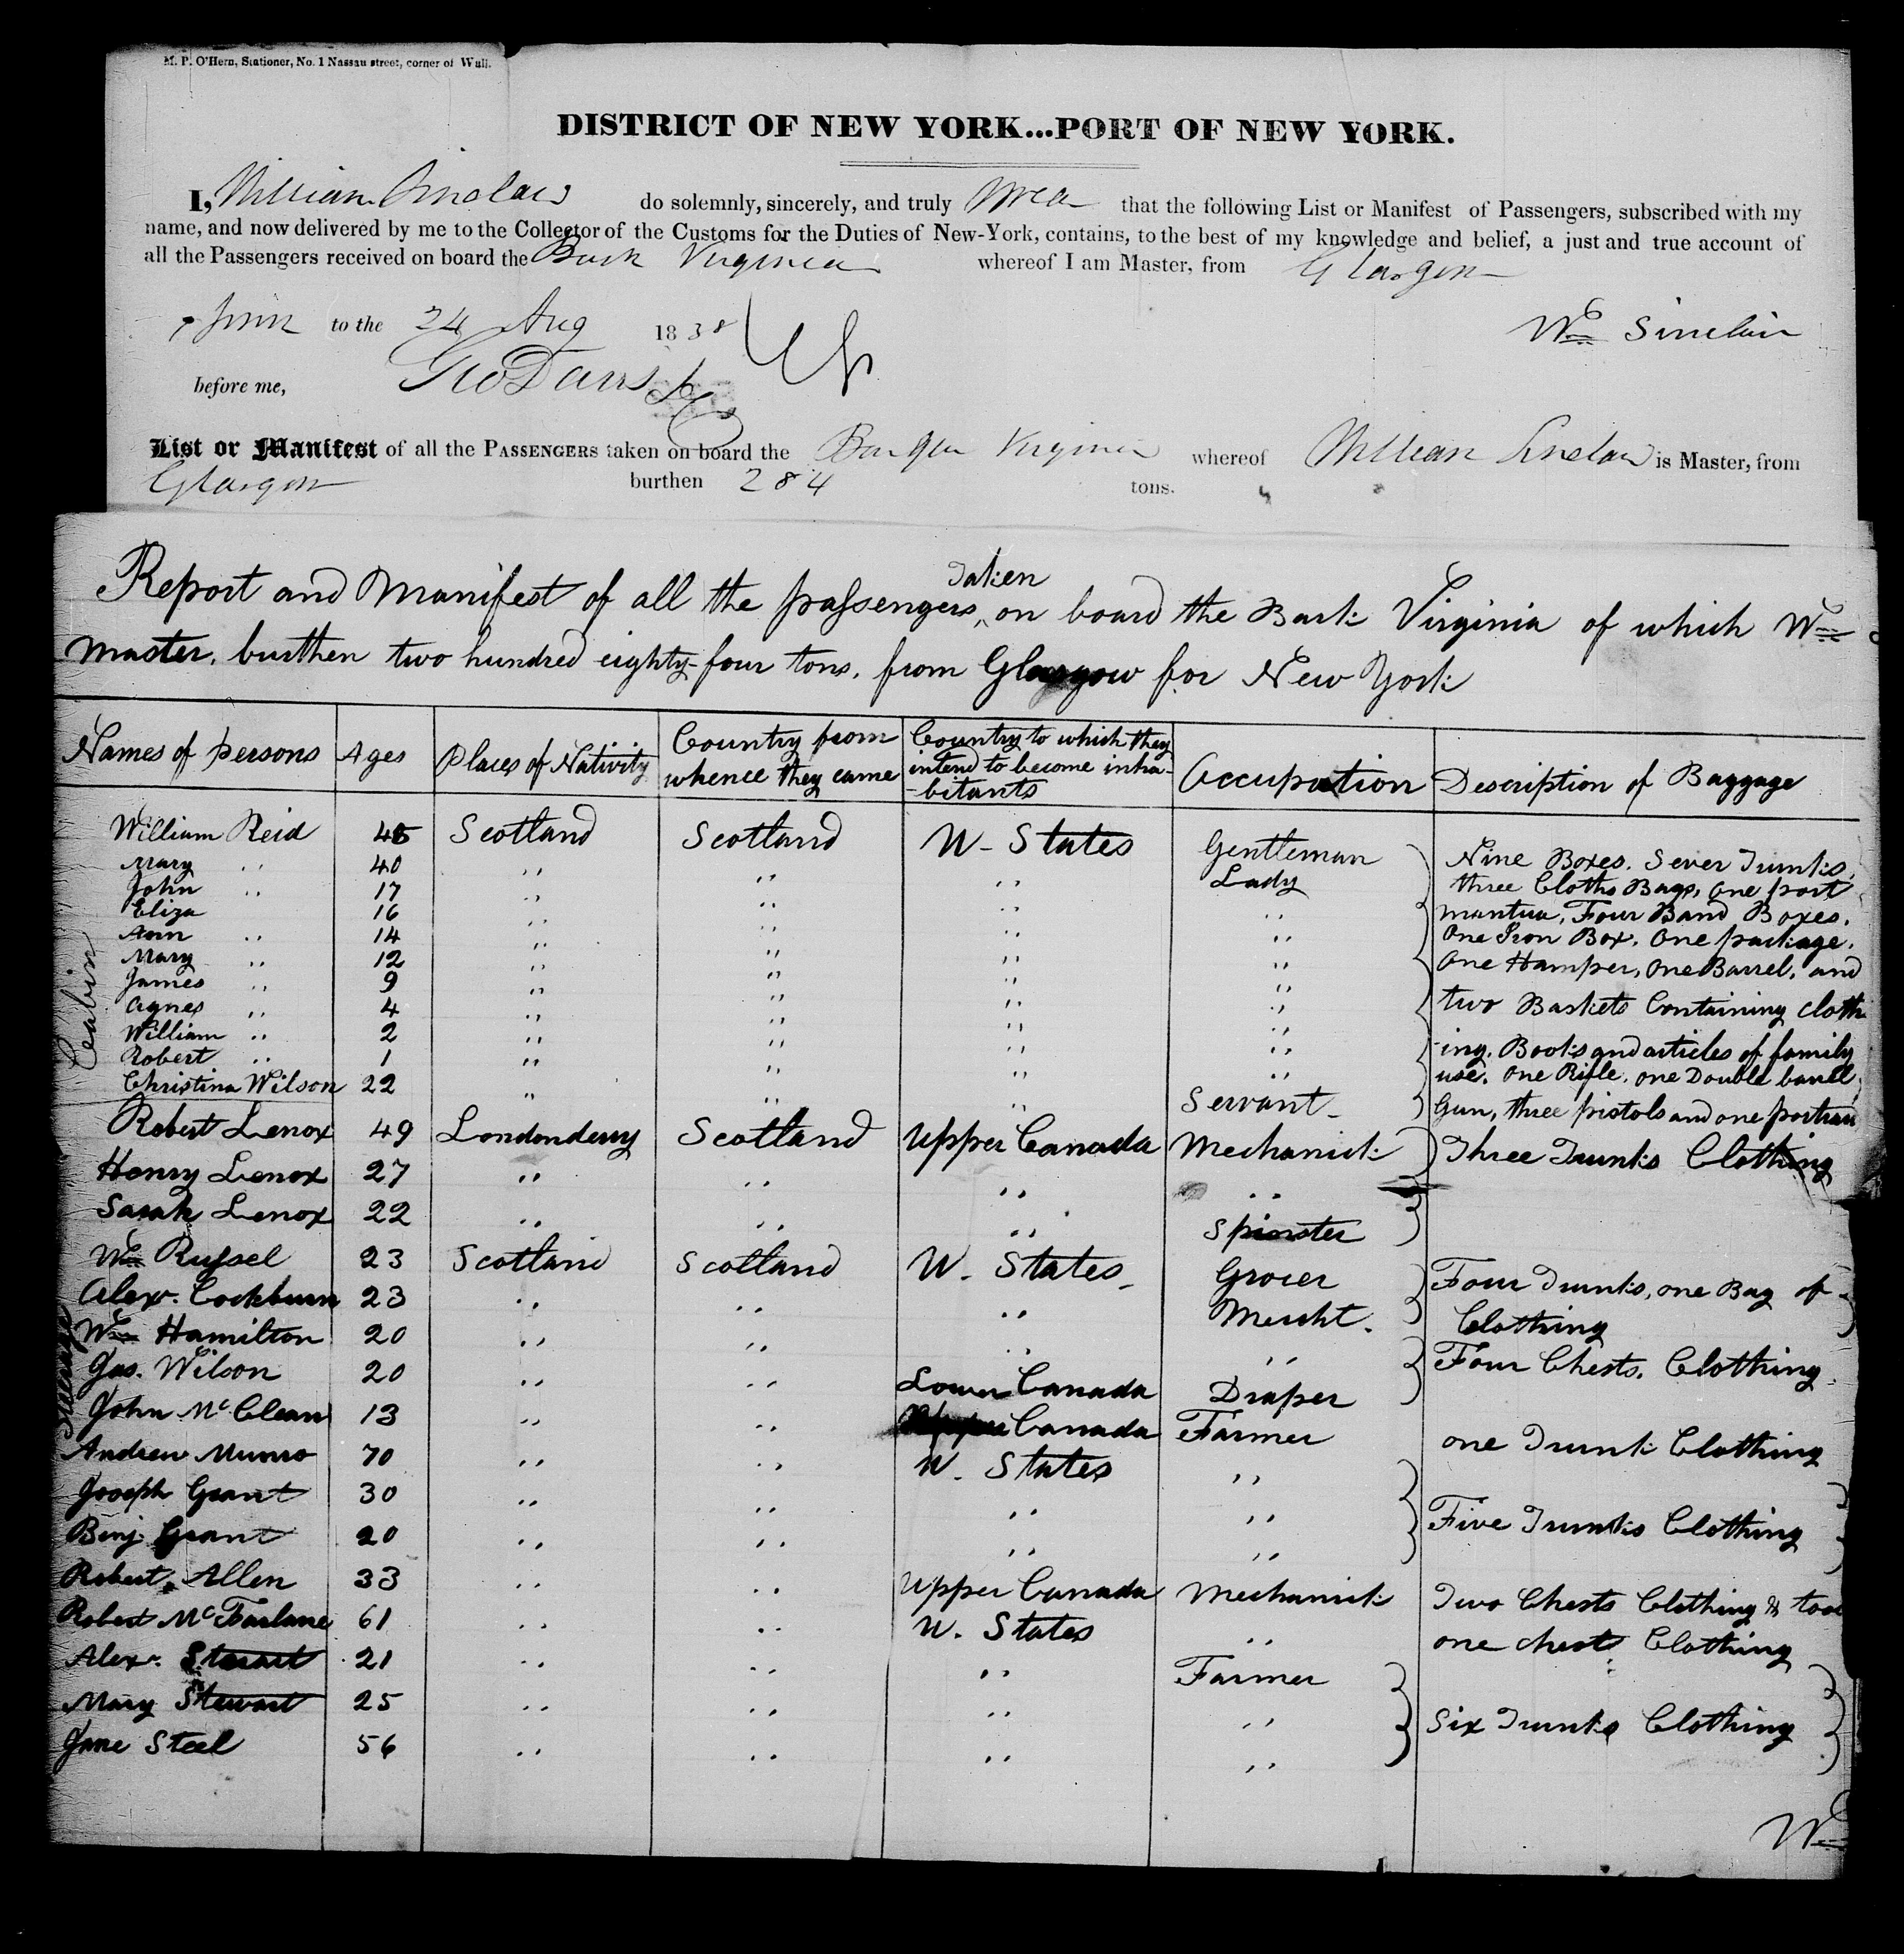 M. P. O'Hern, Stationer, No. 1 Nassau street, corner of Wall.
DISTRICT OF NEW YORK...PORT OF NEW YORK.
I, William Sinclair do solemnly, sincerely, and truly that the following List or Manifest of Passengers, subscribed with my
name, and now delivered by me to the Collector of the Customs for the Duties of New-York, contains, to the best of my knowledge and belief, a just and true account of
all the Passengers received on board the Bark Virginia whereof I am Master, from Glasgow
to the 24 Aug 1838
Wm Sinclair
before me, Geo Davis
List or Manifest of all the PASSENGERS taken on board the Barque Virginia whereof William Sinclair is Master, from
Glasgow burthen 284 tons.
Report and Manifest of all the passengers, taken on board the Bark Virginia of which Wm
master, burthen two hundred eighty-four tons, from Glasgow for New York
Names of persons Ages Places of Nativity Country from whence they came Country to which they intend to become inha-bitants Occupation Description of Baggage
Cabin
William Reid 45 Scotland Scotland U. States Gentleman Nine Boxes. Seven Trunks,
Mary " 40 " " " Lady three Cloths Bags, one port
John " 17 " " " " mantua, Four Band Boxes.
Eliza 16 " " " " One Iron Box. One package.
Ann " 14 " " " " One Hamper, One Barrel, and
Mary " 12 " " " " two Baskets Containing cloth
James " 9 " " " " ing. Books and articles of family
Agnes " 4 " " " " use. One Rifle. one Double barrel
William " 2 " " " " Gun, three pistols and one portman
Robert " 1 " " " "
Christina Wilson 22 " " " Servant
Steerage
Robert Lenox 49 Londonderry Scotland Upper Canada Mechanick Three Trunks Clothing
Henry Lenox 27 " " " "
Sarah Lenox 22 " " " Spinster
Wm Russel 23 Scotland Scotland U. States Grocer Four Trunks, one Bag of
Alexr. Cockburn 23 " " " Mercht. Clothing
Wm Hamilton 20 " " " " Four Chests. Clothing
Jas. Wilson 20 " " Lower Canada Draper
John McClean 13 " " Canada Farmer one Trunk Clothing
Andrew Munro 70 " " U. States "
Joseph Grant 30 " " " " Five Trunks Clothing
Benj. Grant 20 " " " "
Robert Allen 33 " " Upper Canada Mechanick Two Chests Clothing & tool
Robert McFarlane 61 " " U. States " one chest Clothing
Alexr. Stewart 21 " " " Farmer
Mary Stewart 25 " " " " Six Trunks Clothing
Jane Steel 56 " " " "
Wm